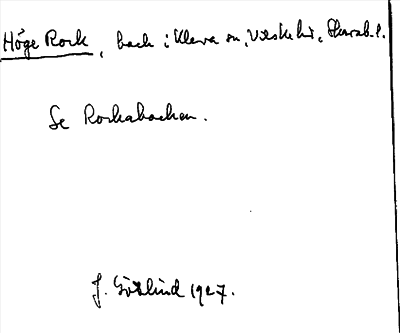 Höge Rock, back i Kleva sn, Vilske hd, Skarab. l.
Se Rockabacken.
J. Götlind 1927.